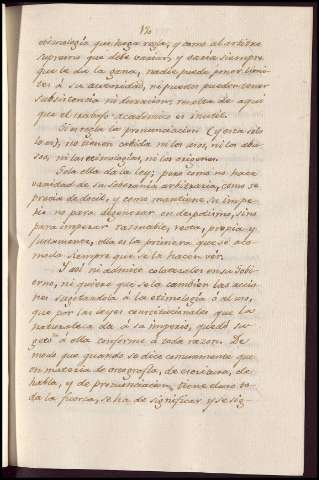 120
etimologia que haga regla, y como al arbitrio
supremo que debe variar, y varia siempre
que le da la gana, nadie puede poner limi-
tes á su autoridad, ni pueden pueden tener
subsistencia ni duracion; resulta de aqui
que el trabajo academico es inutil.
Si arregla la pronunciacion (y esta solo
lo es), no tienen cabida ni los usos, ni los abu-
sos, ni las etimologias, ni los origenes.
Sola ella da la ley; pero como no hace
vanidad de su soberania arbitraria, como se
precia de docil, y como mantiene su impe-
rio no para degenerar en despotismo, sino
para imperar rasonable, recta, propia y
justamente, ella es la primera que se aco-
moda siempre que se la hacen vér.
Y asi ni admite colaterales en su Gobi-
erno, ni quiere que se la cambien las accio-
nes sugetandola á la etimologia ó al uso,
que por las leyes constitucionales que la
naturaleza da á su imperio, quedó su-
geto á ella conforme á toda razon. De
modo que quando se dice comunmente que
en materia de ortografia, de escritura, de
habla, y de pronunciacion, tiene el uso to-
da la fuerza, se ha de significar y se sig-